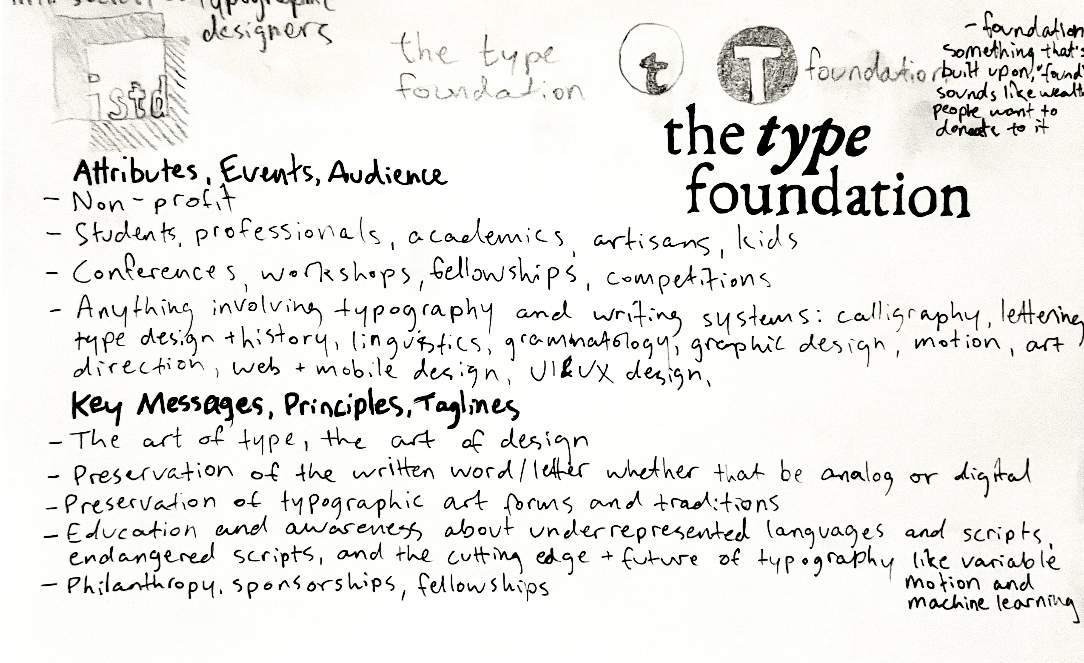 typographic
designers
istd
the type
foundation
t
T foundation
- foundation
something that's
built upon, "found"
sounds like wealth
people want to
donate to it
the type
foundation
Attributes, Events, Audience
- Non-profit
- Students, professionals, academics, artisans, kids
- Conferences, workshops, fellowships, competitions
- Anything involving typography and writing systems: calligraphy, lettering,
type design + history, linguistics, grammatology, graphic design, motion, art
direction, web + mobile design, UI & UX design,
Key Messages, Principles, Taglines
- The art of type, the art of design
- Preservation of the written word/letter whether that be analog or digital
- Preservation of typographic art forms and traditions
- Education and awareness about underrepresented languages and scripts,
endangered scripts, and the cutting edge + future of typography like variable
motion and
machine learning
- Philanthropy, sponsorships, fellowships